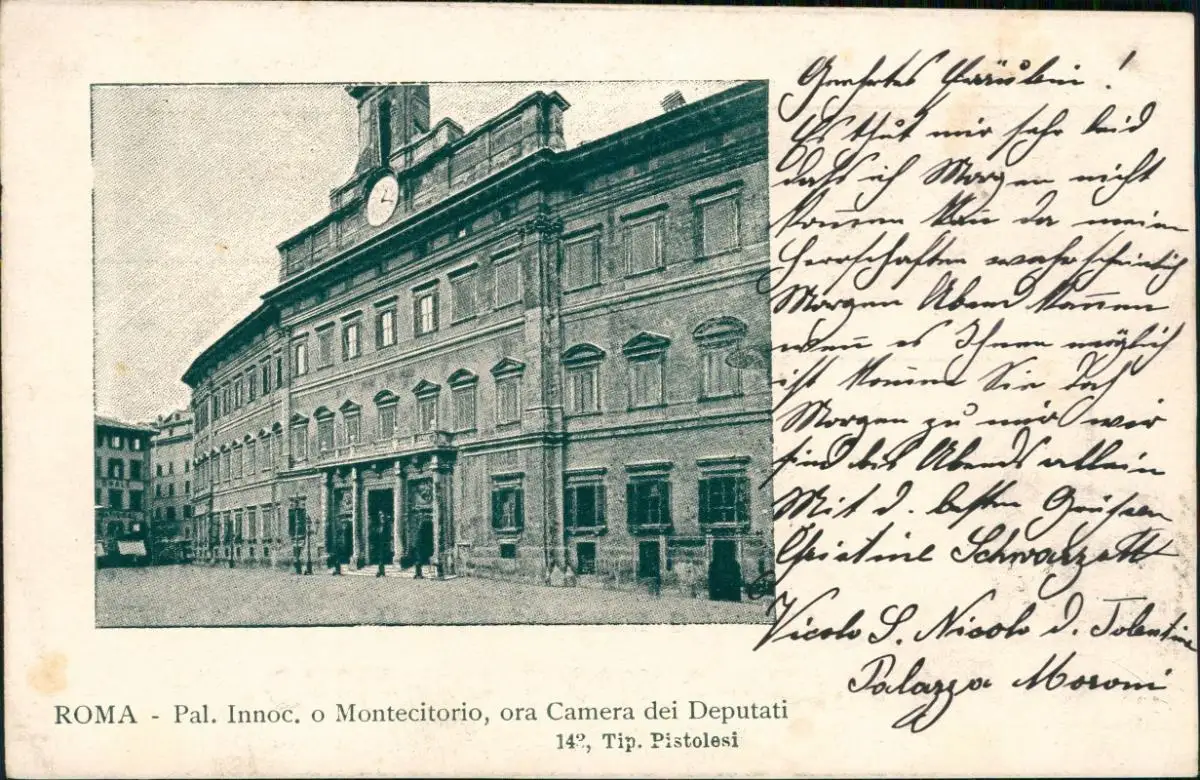 Geehrtes Fräulein!
Es thut mir sehr leid
daß ich Morgen nicht
kom̄en kan da meine
Herrschaften wahrscheinlich
Morgen Abend kom̄en
wen̄ es Ihnen möglich
ist kom̄en Sie doch
Morgen zu mir wir
sind bis Abends allein
Mit d. besten Grüssen
Christine Schwarzott
Vicolo S. Nicolo d. Tolentino
Palazzo Moroni
ROMA - Pal. Innoc. o Montecitorio, ora Camera dei Deputati
142, Tip. Pistolesi